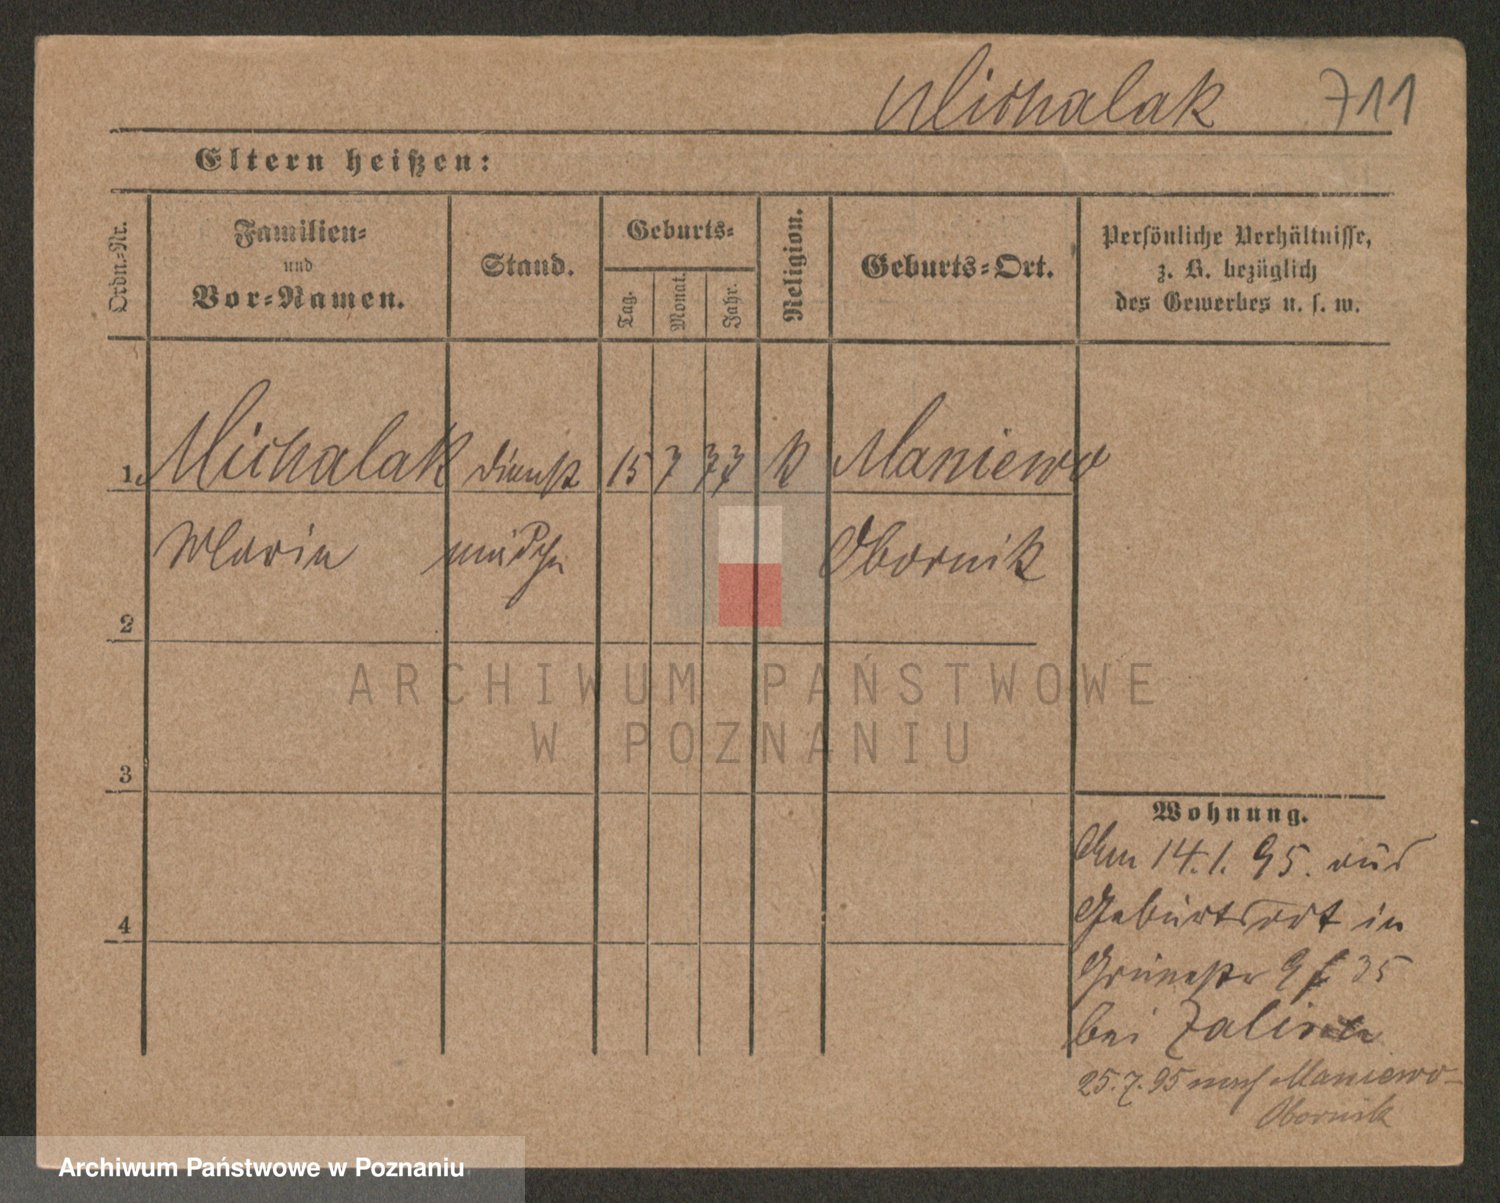 Michalak 711
Eltern heißen:
Ordn.-Nr.
Familien-
und
Vor-Namen.
Stand.
Geburts-
Tag.
Monat.
Jahr.
Religion.
Geburts-Ort.
Persönliche Verhältnisse,
z. B. bezüglich
des Gewerbes u. s. w.
1. Michalak dienst 15 7 77 k Maniewo
Maria mädch Obornik
2
ARCHIWUM PAŃSTWOWE
W POZNANIU
3
Wohnung.
Am 14.1.95. aus
4
Geburtsort in
Grünestr 35
bei
25.7.95 nach Maniewo-
Obornik
Archiwum Państwowe w Poznaniu